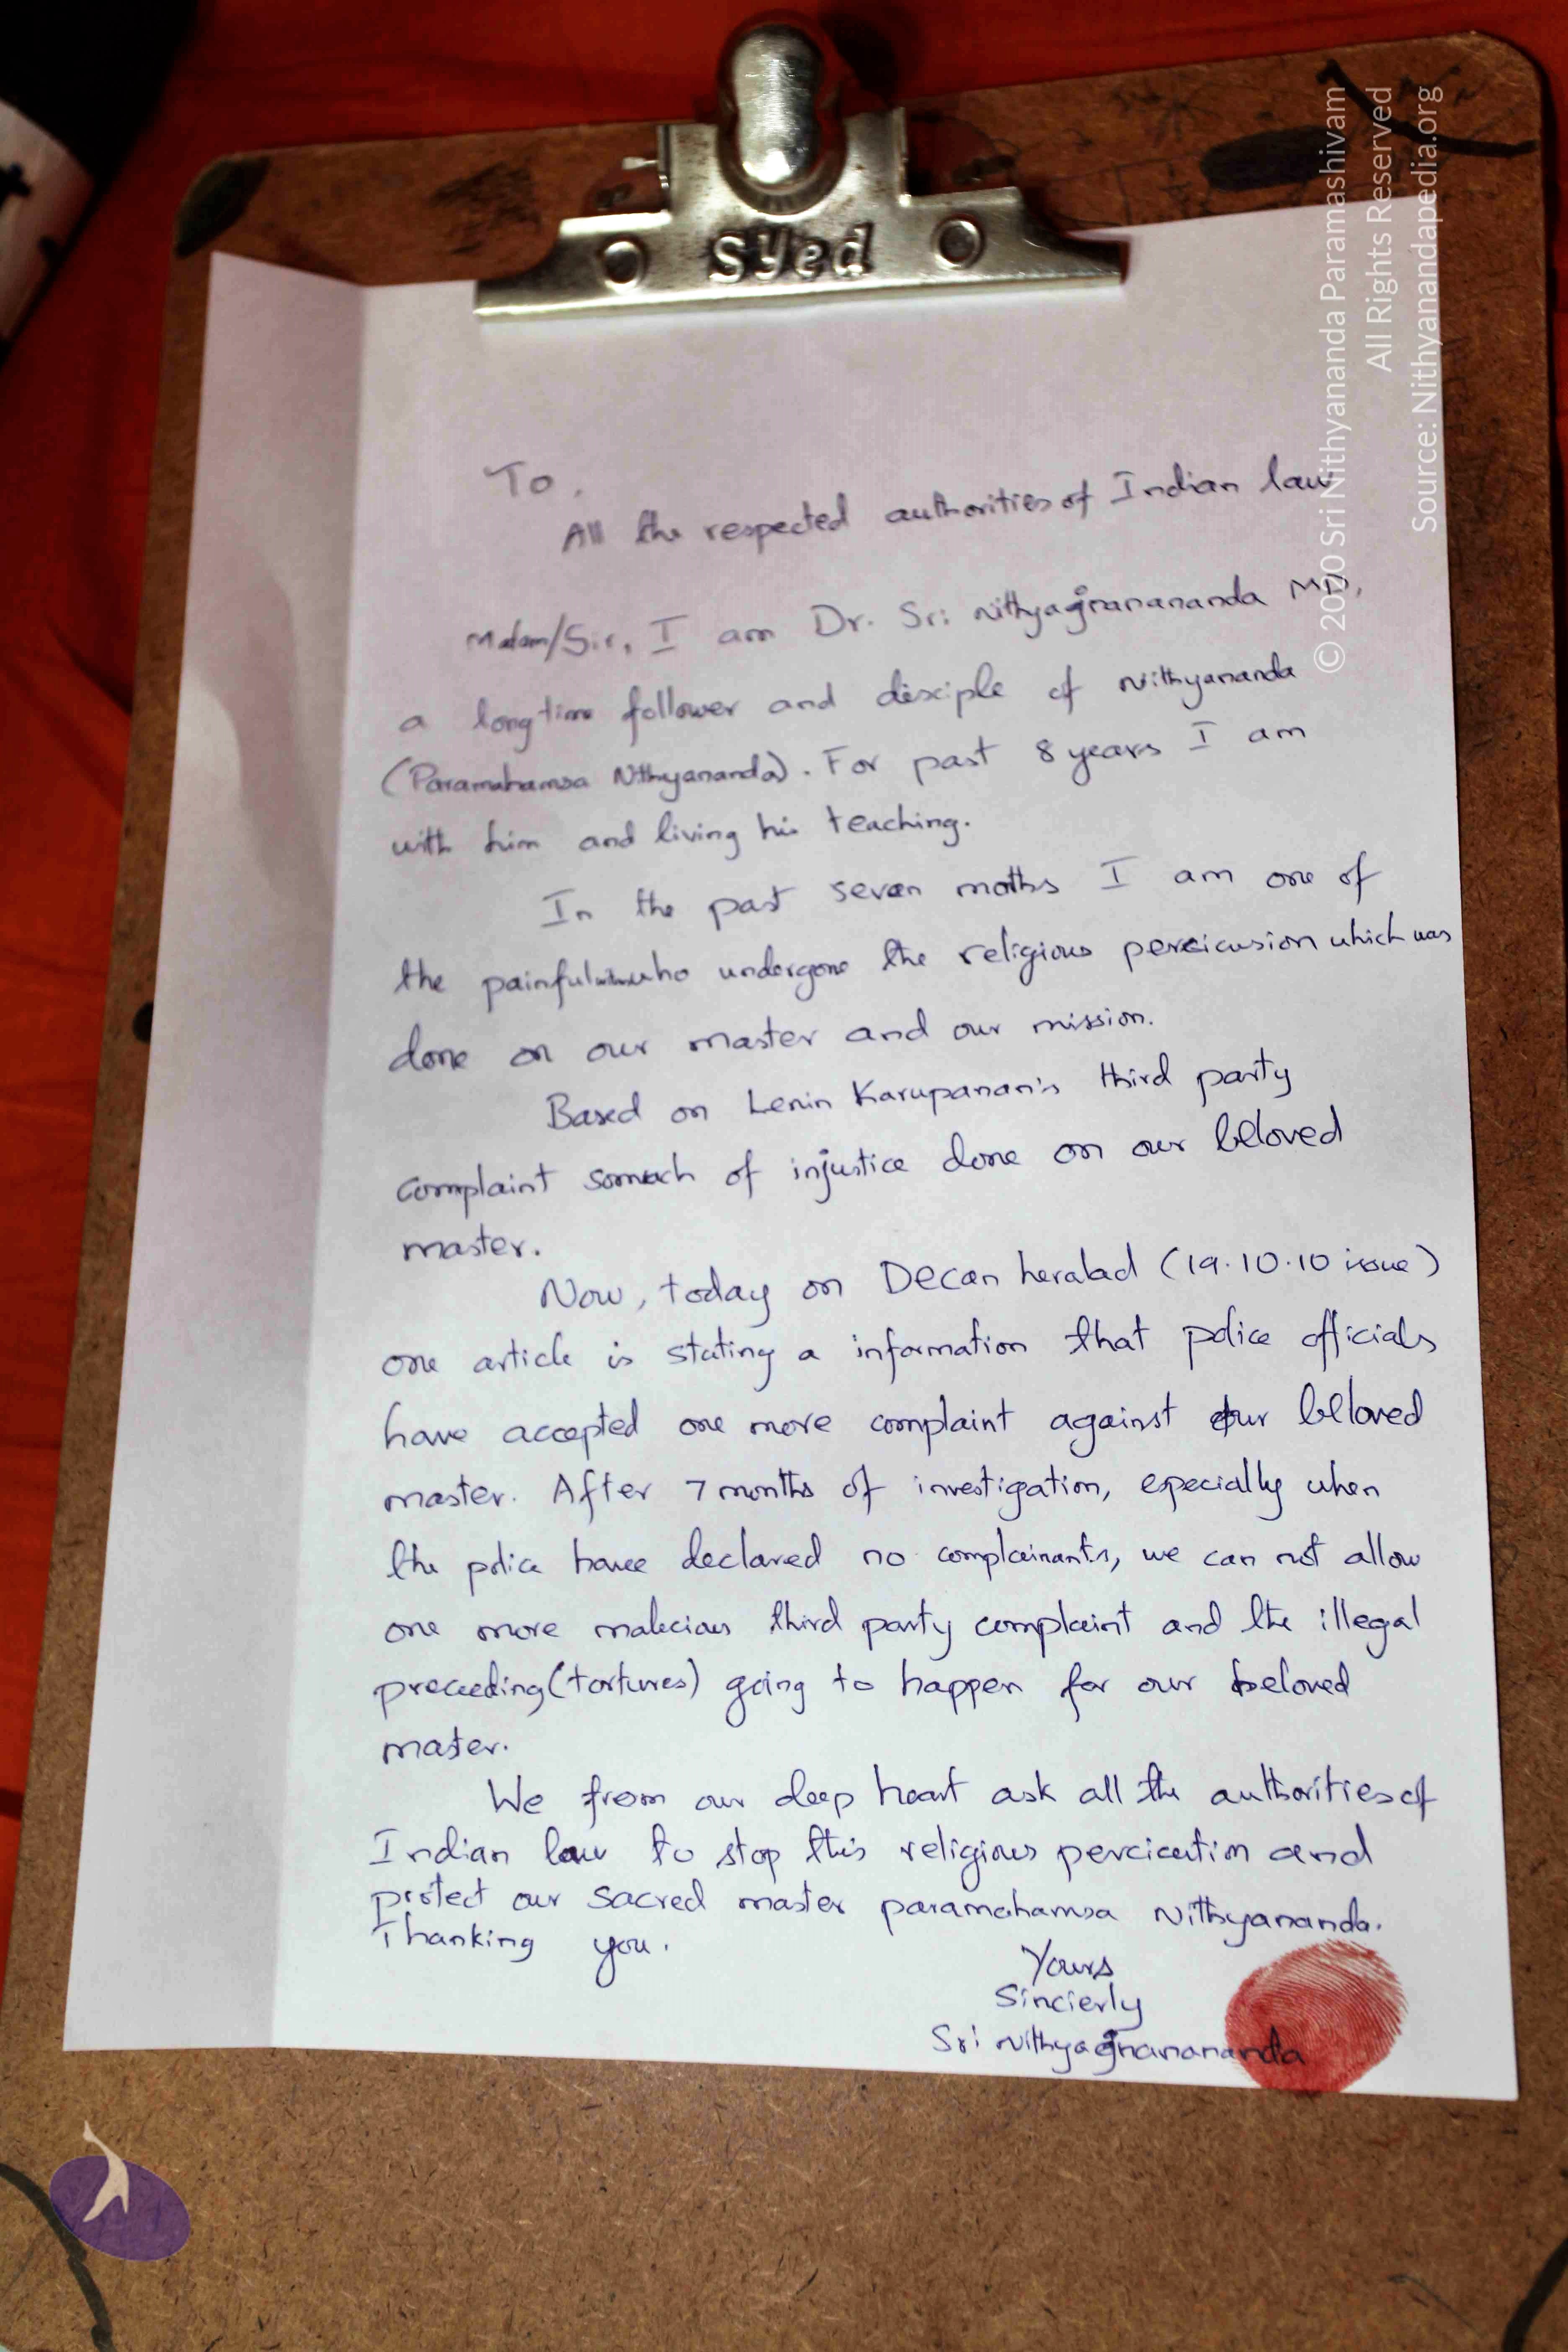 Syed
© 2020 Sri Nithyananda Paramashivam
All Rights Reserved
Source: Nithyanandapedia.org
To,
All the respected authorities of Indian law
Madam/Sir, I am Dr. Sri Nithyagnanananda MD,
a long time follower and disciple of Nithyananda
(Paramahamsa Nithyananda). For past 8 years I am
with him and living his teaching.
In the past seven moths I am one of
the painful who undergone the religious percicusion which was
done on our master and our mission.
Based on Lenin Karupanan's third party
complaint somuch of injustice done on our beloved
master.
Now, today on Decan heralad (19.10.10 issue)
one article is stating a information that police officials
have accepted one more complaint against our beloved
master. After 7 months of investigation, especially when
the police have declared no complainants, we can not allow
one more malecious third party complaint and the illegal
preceeding (tortures) going to happen for our beloved
mater.
We from our deep heart ask all the authorities of
Indian law to stop this religious percicution and
protect our sacred master paramahamsa Nithyananda.
Thanking you.
Yours
Sincierly
Sri Nithyagnanananda